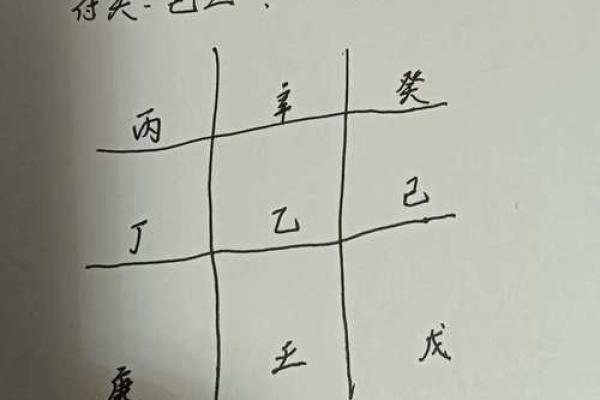 丙 辛 癸
丁 乙 己
庚 壬 戊